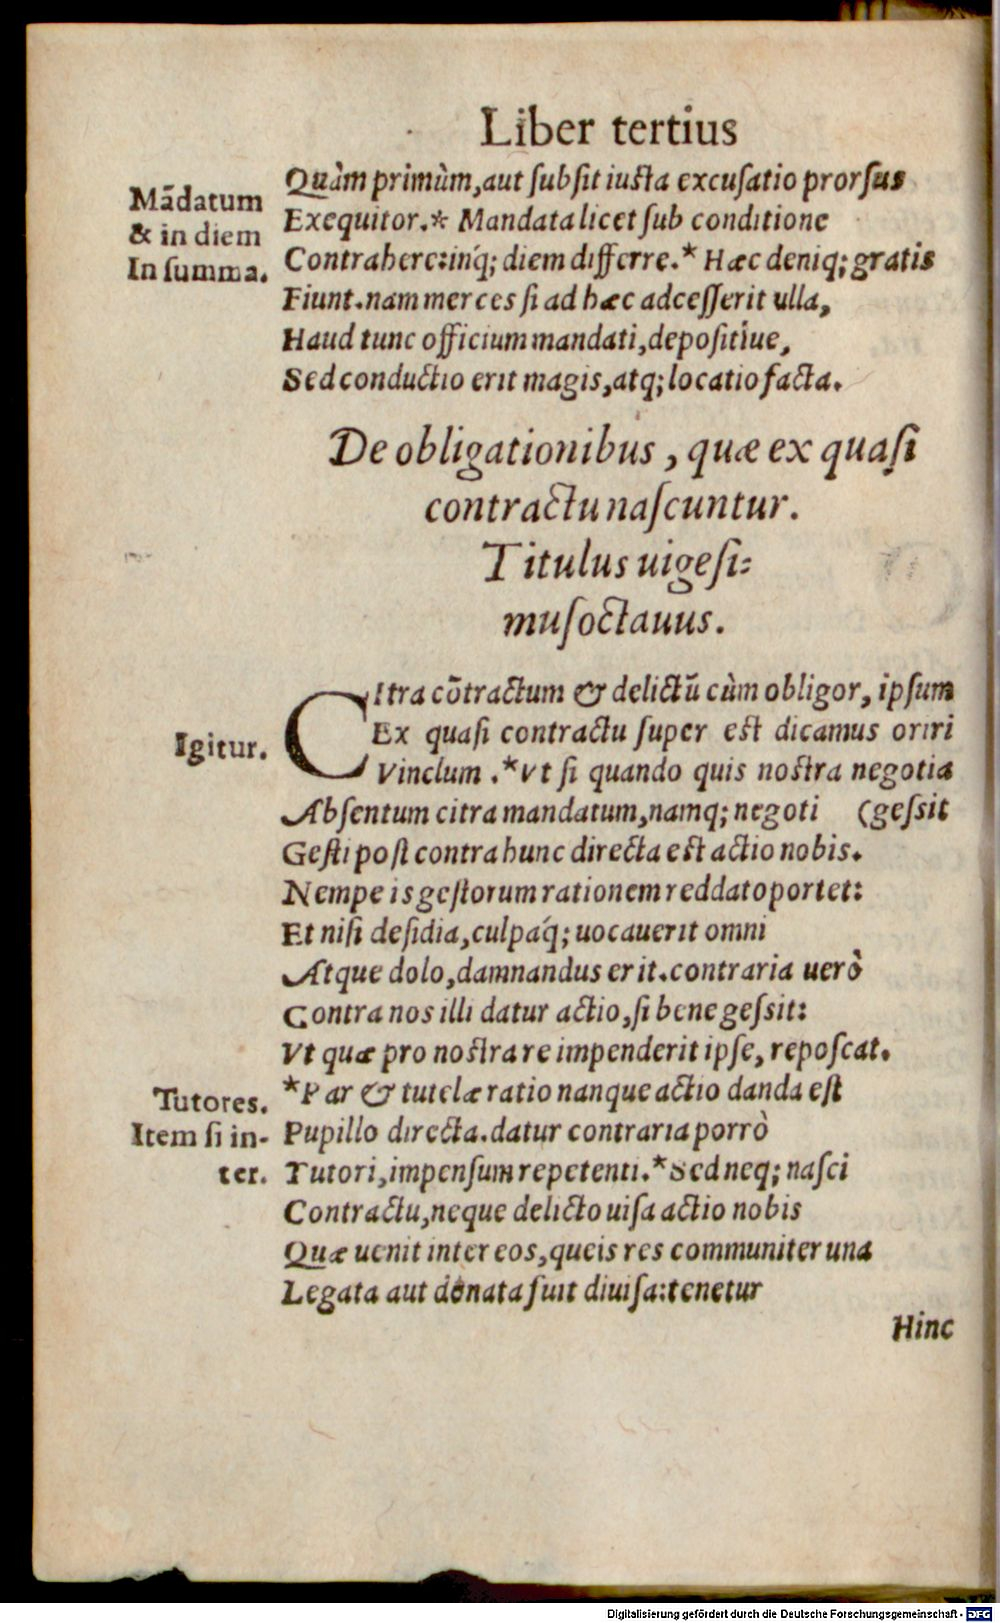 Liber tertius
Mãdatum
& in diem
In summa.
Quàm primùm, aut subsit iusta excusatio prorsus
Exequitor.* Mandata licet sub conditione
Contrahere: inq́; diem differre.* Hæc deniq; gratis
Fiunt. nam merces si ad hæc adcesserit ulla,
Haud tunc officium mandati, depositíue,
Sed conductio erit magis, atq; locatio facta.
De obligationibus, quæ ex quasi
contractu nascuntur.
Titulus uigesi=
musoctauus.
Igitur.
CItra cõtractum & delictũ cùm obligor, ipsum
Ex quasi contractu super est dicamus oriri
Vinclum.* Vt si quando quis nostra negotia
Absentum citra mandatum, namq; negoti (gessit
Gesti post contra hunc directa est actio nobis.
Nempe is gestorum rationem reddat oportet:
Et nisi desidia, culpaq́; uocauerit omni
Atque dolo, damnandus erit. contraria uerò
Contra nos illi datur actio, si bene gessit:
Vt quæ pro nostra re impenderit ipse, reposcat.
Tutores.
Item si in-
ter.
*Par & tutelæ ratio nanque actio danda est
Pupillo directa. datur contraria porrò
Tutori, impensum repetenti.* Sed neq; nasci
Contractu, neque delicto uisa actio nobis
Quæ uenit inter eos, queis res communiter una
Legata aut donata fuit diuisa: tenetur
Hinc
Digitalisierung gefördert durch die Deutsche Forschungsgemeinschaft - DFG